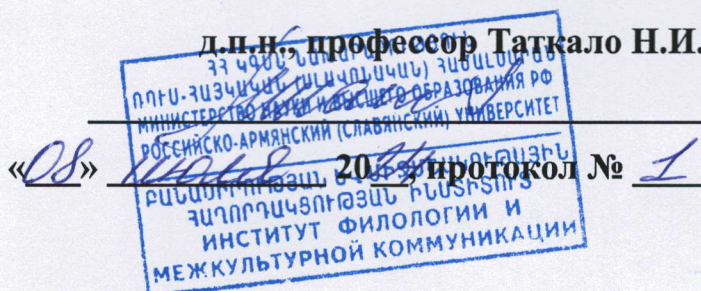 д.п.н., профессор Таткало Н.И.
РОՒՍ-ՀԱՅԿԱԿԱՆ (ՍԼԱՎՈՆԱԿԱՆ) ՀԱՄԱԼՍԱՐԱՆ
МИНИСТЕРСТВО НАУКИ И ВЫСШЕГО ОБРАЗОВАНИЯ РФ
РОССИЙСКО-АРМЯНСКИЙ (СЛАВЯНСКИЙ) УНИВЕРСИТЕТ
«08» июля 20, протокол № 1
ՀԱՂՈՐԴԱԿՑՈՒԹՅԱՆ ԻՆՍՏԻՏՈՒՏ
ИНСТИТУТ ФИЛОЛОГИИ И
МЕЖКУЛЬТУРНОЙ КОММУНИКАЦИИ